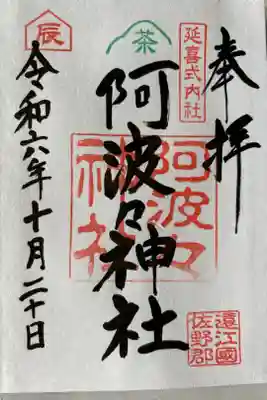 奉拝
延喜式内社
茶
阿波々神社
阿波々
神社
遠江國
佐野郡
辰
令和六年十月二十日